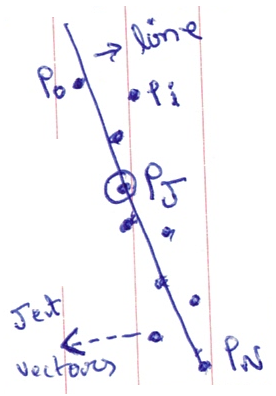 → line
P₀
Pi
PJ
Jet
vectors
PN